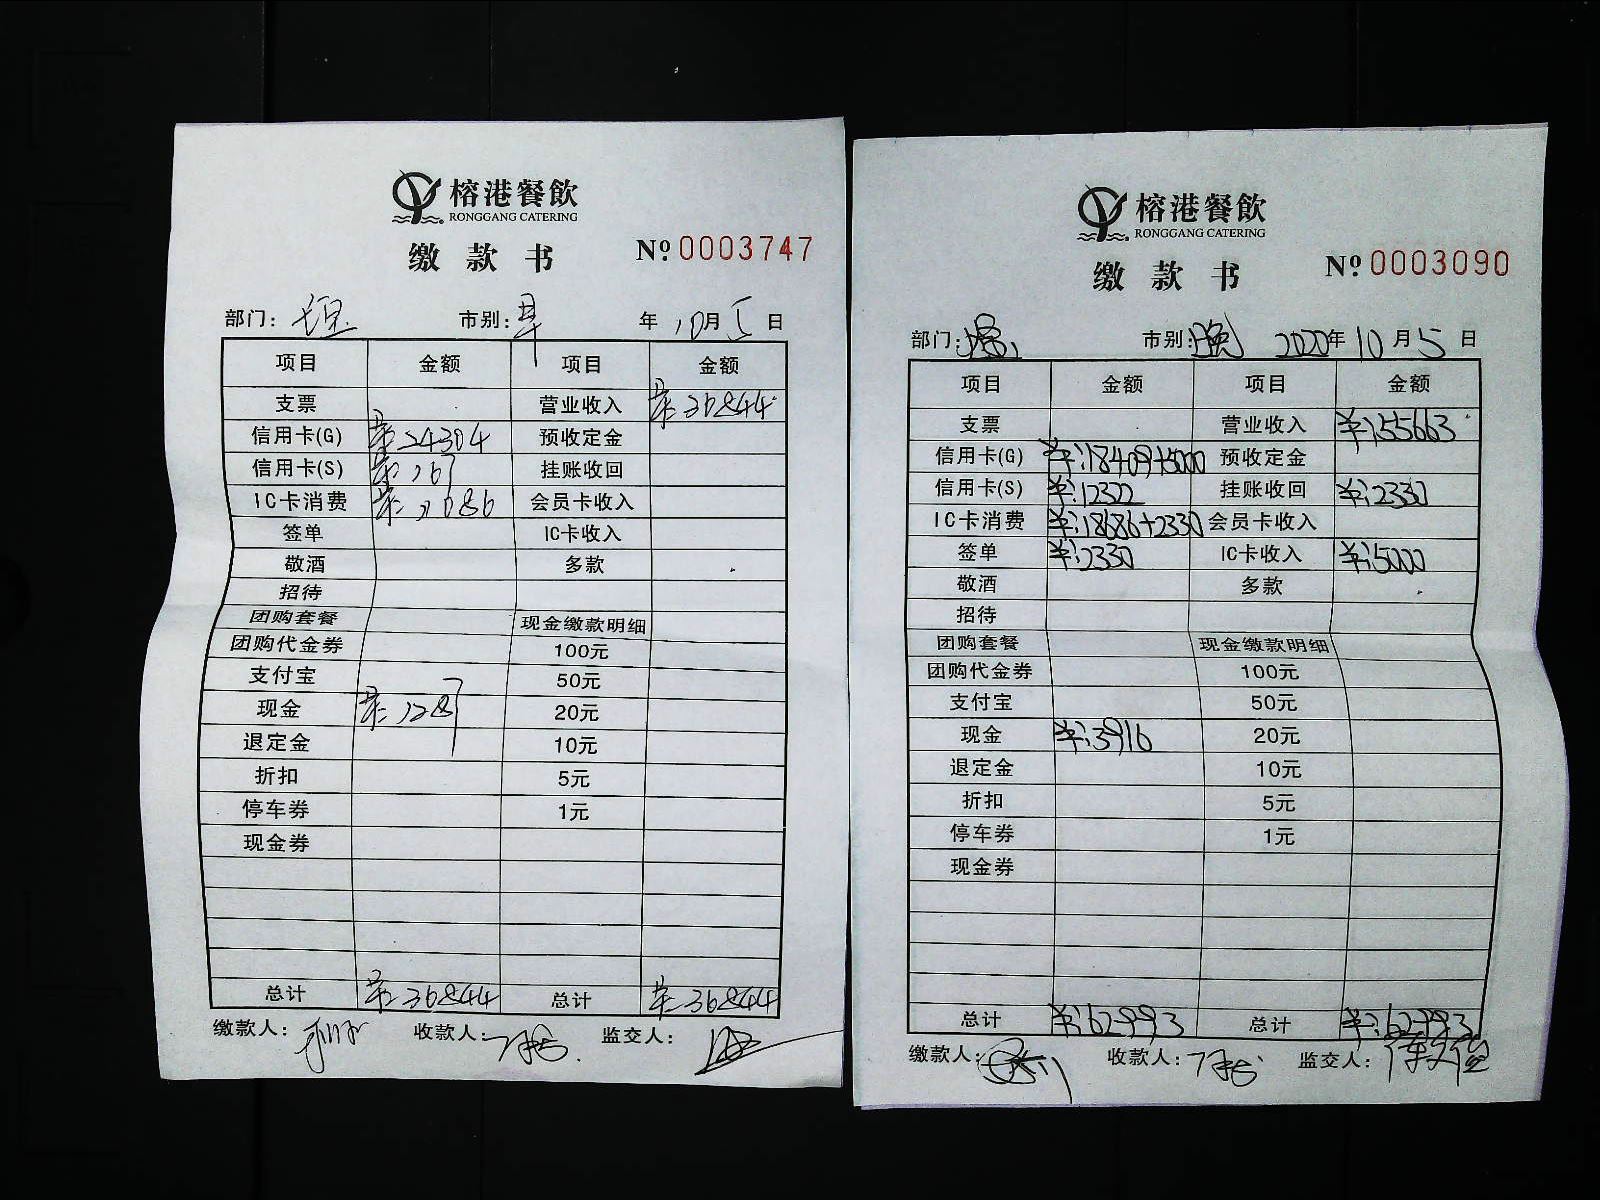 榕港餐飲
RONGGANG CATERING
缴款书 Nº 0003747
部门: 市别: 早 年 10月5日
项目 金额 项目 金额
支票 营业收入 36844
信用卡(G) 24304 预收定金
信用卡(S) 挂账收回
IC卡消费 会员卡收入
签单 IC卡收入
敬酒 多款
招待
团购套餐 现金缴款明细
团购代金券 100元
支付宝 50元
现金 1287 20元
退定金 10元
折扣 5元
停车券 1元
现金券
总计 36844 总计 36844
缴款人: 收款人: 监交人:
榕港餐飲
RONGGANG CATERING
缴款书 Nº 0003090
部门: 市别: 晚 2020年10月5日
项目 金额 项目 金额
支票 营业收入 ¥:55663
信用卡(G) ¥:18409+5000 预收定金
信用卡(S) ¥:12322 挂账收回 ¥:2330
IC卡消费 ¥:18686+2330 会员卡收入
签单 ¥:2330 IC卡收入 ¥:5000
敬酒 多款
招待
团购套餐 现金缴款明细
团购代金券 100元
支付宝 50元
现金 ¥:3916 20元
退定金 10元
折扣 5元
停车券 1元
现金券
总计 ¥:62993 总计 ¥:62993
缴款人: 收款人: 监交人: